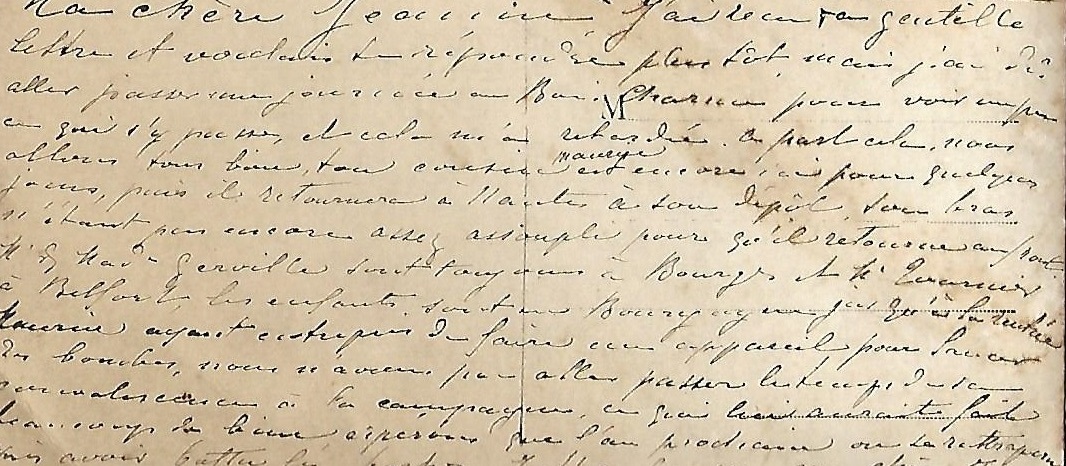 Ma chère Jeannine J'ai reçu ta gentille
lettre et voulais te répondre plus tôt mais j'ai dû
aller passer une journée au Bois. Charme pour voir un peu
M
ce qui s'y passe, et cela m'a retardée. a part cela, nous
allons tous bien, ton cousin maurice est encore ici pour quelques
jours, puis il retournera à Nantes à son dépôt, son bras
n'étant pas encore assez assoupli pour qu'il retourne au front
Mr & Made Gerville sont toujours à Bourges et Mr Tournier
à Belfort les enfants sont en Bourgogne jusqu'à la rentrée
Maurice ayant entrepris de faire un appareil pour lancer
des bombes, nous n'avons pu aller passer le temps de sa
convalescence à la campagne, ce qui lui aurait fait
beaucoup de bien espérons que l'an prochain on se rattrapera